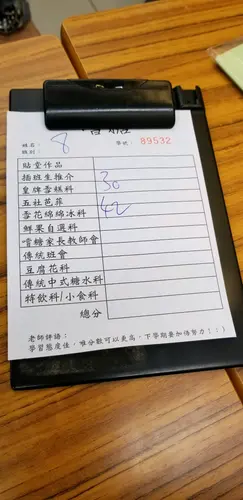 姓名：8
學號：89532
班別：
貼堂作品
插班生推介
皇牌雪糕科 30
五社芭菲
雪花綿綿冰科 42
鮮果自選科
嚐糖家長教師會
傳統班會
豆腐花科
傳統中式糖水科
特飲科/小食科
總分
老師評語：
學習態度佳，唯分數可以更高，下學期要加倍努力！:)